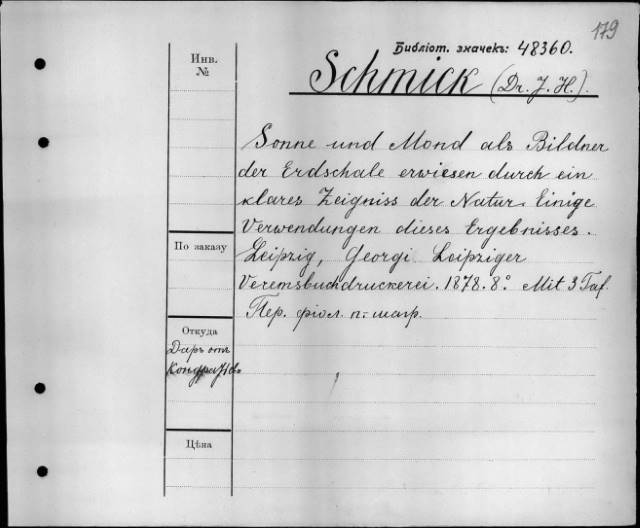 179
Библіот. значекъ: 48360.
Инв.
№
Schmick (Dr. J. H.).
Sonne und Mond als Bildner
der Erdschale erwiesen durch ein
klares Zeigniss der Natur. Einige
Verwendungen dieses Ergebnisses.
Leipzig, Georgi. Leipziger
Vereinsbuchdruckerei. 1878. 8°. Mit 3 Taf.
Пер. фіол. п. шагр.
По заказу
Откуда
Даръ отъ
Цѣна